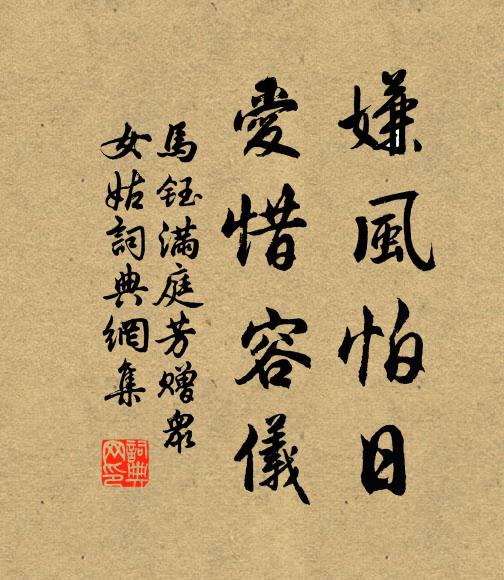 嫌風怕日
愛惜容儀
馬鈺滿庭芳贈衆
女姑詞典網集
詞典網印